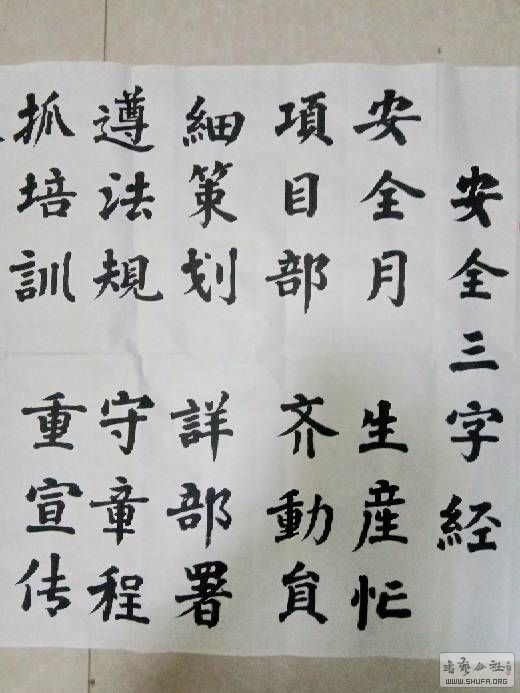 安全三字経
安全月 生産忙
項目部 齐動員
細策划 詳部署
遵法規 守章程
抓培訓 重宣传
书艺公社
WWW.SHUFA.ORG